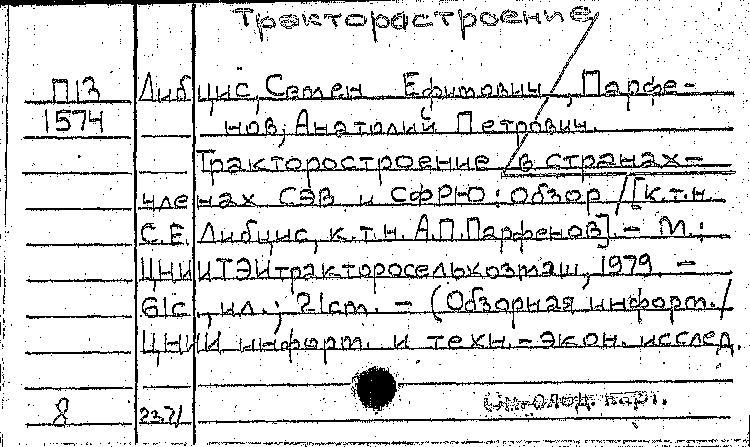 Тракторостроение
П13 Либцис, Семен Ефимович, Парфе-
1574 нов, Анатолий Петрович.
Тракторостроение в странах-
членах СЭВ и СФРЮ: Обзор / [к.т.н.
С.Е. Либцис, к.т.н. А.П. Парфенов]. - М.:
ЦНИИТЭИтракторосельхозмаш, 1979. -
61с., ил.; 21см. - (Обзорная информ. /
ЦНИИ информ. и техн.-экон. исслед.
8 см. след. карт.